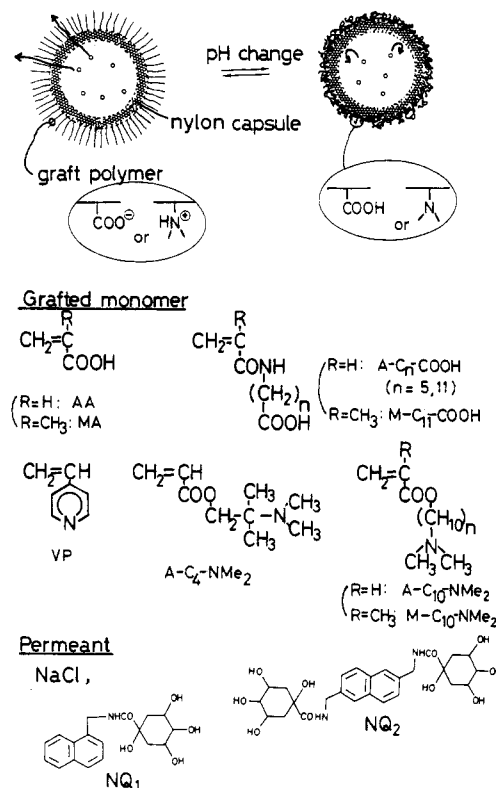 pH change
nylon capsule
graft polymer
COO⊖ or HN⊕
COOH or N
Grafted monomer
R
CH2=C
COOH
(R=H: AA
R=CH3: MA
R
CH2=C
CO-NH
(CH2)n
COOH
(R=H: A-Cn-COOH
(n=5,11)
R=CH3: M-C11-COOH
CH2=CH
N
VP
CH2=CH
COO
CH2-C-N
CH3
CH3
CH3
CH3
A-C4-NMe2
R
CH2=C
COO
(CH10)n
N
CH3 CH3
(R=H: A-C10-NMe2
R=CH3: M-C10-NMe2
Permeant
NaCl,
NHCO OH
HO OH
OH
NQ1
HO OH
HO
HO CO
HN
NHCO OH
OH
HO OH
NQ2